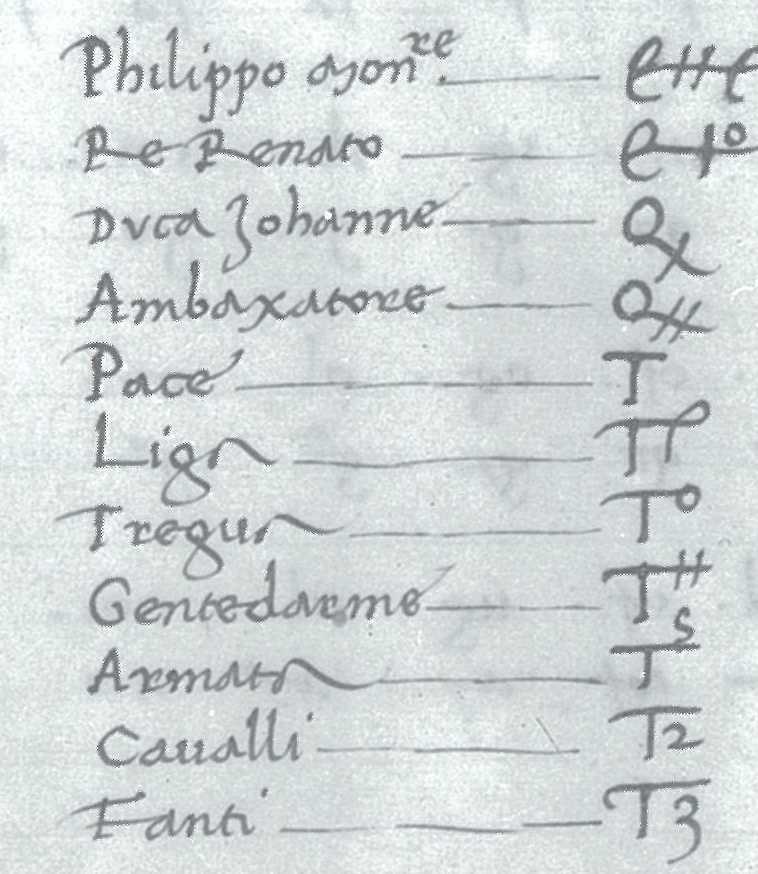 Philippo Mon.re
Re Renato
Duca Johanne
Ambaxatore
Pace T
Liga T
Tregua To
Gentedarme T
Armata Ts
Caualli T2
Fanti T3